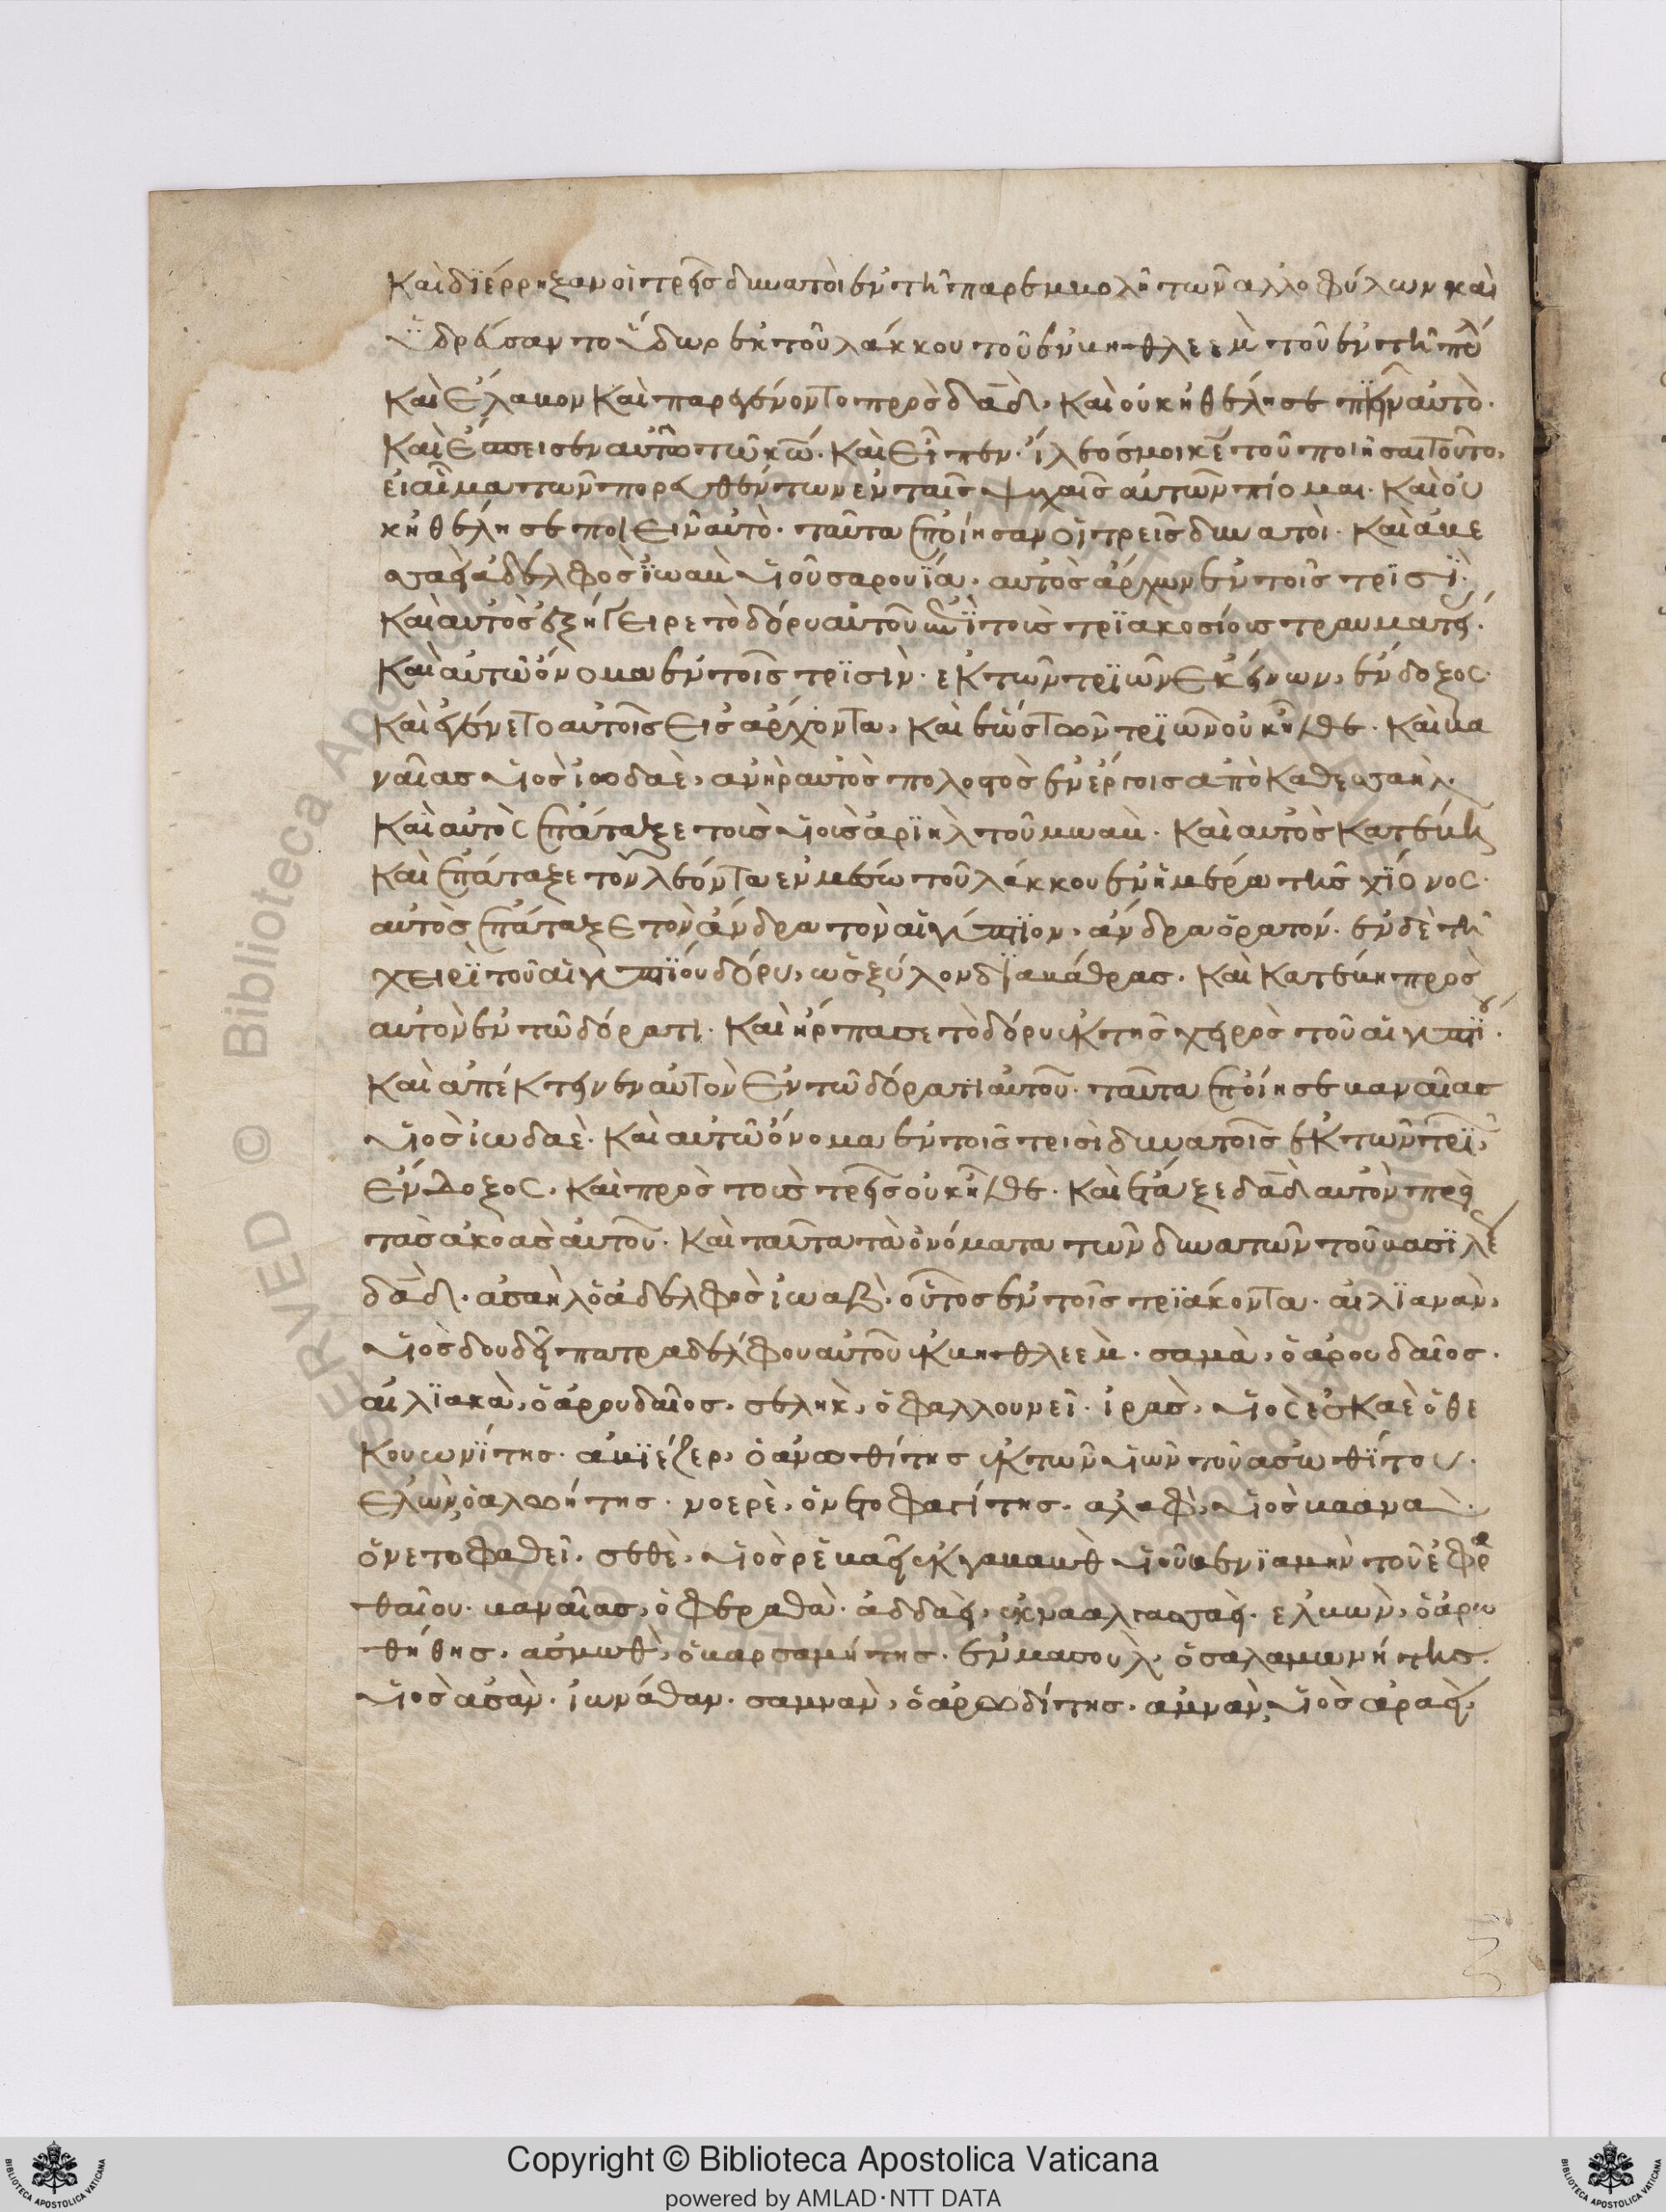 Καὶ διέρρηξαν οἱ τρεῖς δυνατοὶ ἐν τῆ παρεμβολῆ τῶν ἀλλοφύλων καὶ
ὑδρεύσαν το ὕδωρ ἐκ τοῦ λάκκου τοῦ ἐν βηθλεεμ τοῦ ἐν τῆ πύλ
Καὶ ἔλαβον Καὶ παρεγένοντο πρὸς δαδ, Καὶ οὐκ ἠθέλησε πιεῖν αὐτὸ.
Καὶ ἔσπεισεν αὐτὸ τῶ κω. Καὶ εἶπεν. ἵλεός μοι κε τοῦ ποιῆσαι τοῦτο,
εἰ αἷμα τῶν πορευθέντων ἐν ταῖς ψυχαῖς αὐτῶν πίομαι. Καὶ οὐ
κ ἠθέλησε πιεῖν αὐτὸ. ταῦτα ἐποίησαν οἱ τρεῖς δυνατοὶ. Καὶ ἀβε
σσαεὶ ἀδελφὸς ἰωαβ υἱοῦ σαρουΐα, αὐτὸς ἄρχων ἐν τοῖς τρισῒ.
Καὶ αὐτὸς ἐξήγειρε τὸ δόρυ αὐτοῦ ἐπῒ τοὺς τριακοσίους τραυματί.
Καὶ αὐτῶ ὄνομα ἐν τοῖς τρισὶν. ἐκ τῶν τριῶν ἐκείνων, ἔνδοξος.
Καὶ ἐγένετο αὐτοῖς εἰς ἄρχοντα, Καὶ ἕως τῶν τριῶν οὐκ ἦλθε. Καὶ βα
ναίας υἱὸς ἰωδαὲ, ἀνὴρ αὐτὸς πολοστὸς ἐν ἔργοις ἀπὸ Καθεσσαὴλ.
Καὶ αὐτὸς ἐπάταξε τοὺς υἱοὺς ἀριὴλ τοῦ μωαβ. Καὶ αὐτὸς Κατέβη
Καὶ ἐπάταξε τὸν λέοντα ἐν μέσω τοῦ λάκκου ἐν ἡμέρα τῆς χιόνος.
αὐτὸς ἐπάταξε τὸν ἄνδρα τὸν αἰγύπτιον, ἄνδρα ὁρατόν. ἐν δὲ τῆ
χειρῒ τοῦ αἰγυπτίου δόρυ, ὡς ξύλον διαβάθρας. Καὶ Κατέβη πρὸς
αὐτὸν ἐν τῶ δόρατι. Καὶ ἥρπασε τὸ δόρυ ἐκ τῆς χειρὸς τοῦ αἰγυπτίου.
Καὶ ἀπέκτεινεν αὐτὸν ἐν τῶ δόρατι αὐτοῦ. ταῦτα ἐποίησε βαναίας
υἱὸς ἰωδαὲ. Καὶ αὐτῶ ὄνομα ἐν τοῖς τρισὶ δυνατοῖς ἐκ τῶν τριῶ,
ἔνδοξος, Καὶ πρὸς τοὺς τρεῖς οὐκ ἦλθε. Καὶ ἔταξε δαδ αὐτὸν πρὸ
τὰς ἀκοὰς αὐτοῦ. Καὶ ταῦτα τὰ ὀνόματα τῶν δυνατῶν τοῦ βασιλέ
δαδ. ἀσαὴλ ὁ ἀδελφὸς ἰωαβ, οὗτος ἐν τοῖς τριάκοντα. αἰλιανὰν,
υἱὸς δουδεὶ πατραδέλφου αὐτοῦ ἐκ βηθλεεμ. σαμὰ, ὁ ἀρουδαῖος.
αἰλιακὰ, ὁ ἀρουδαῖος, σελὴκ, ὁ φαλλουνεῖ. ἰρὰς, υἱὸς ἐσκαὲ ὁ θε
Κουωνίτης. ἀβιέζερ, ὁ ἀνωθίτης ἐκ τῶν υἱῶν τοῦ ἀσωθίτου.
ἐλὼν, ὁ αλωήτης. νοερὲ, ὁ νετοφατίτης. αλαφ, υἱὸς βααναὶ.
ὁ νετοφαθεῖ. σεθὲ, υἱὸς ρεβαεὶ ἐκ γαβαὼθ υἱοῦ βενιαμὴν τοῦ ἐφρ
θαίου. βαναίας, ὁ φεραθὰ. ἀδδαεὶ, ἐκ νααλγασσαεὶ. ἐλμὼν, ὁ ἀρω
θήθης, ἀσμὼθ, ὁ βαρσαμήτης. ἐνμασοὺλ, ὁ σαλαμωνήτης.
υἱὸς ἀσὰν. ἰωνάθαν. σαμνὰν, ὁ ἀρωδίτης. ἀμνὰν, υἱὸς ἀραεὶ,
Copyright © Biblioteca Apostolica Vaticana
powered by AMLAD·NTT DATA